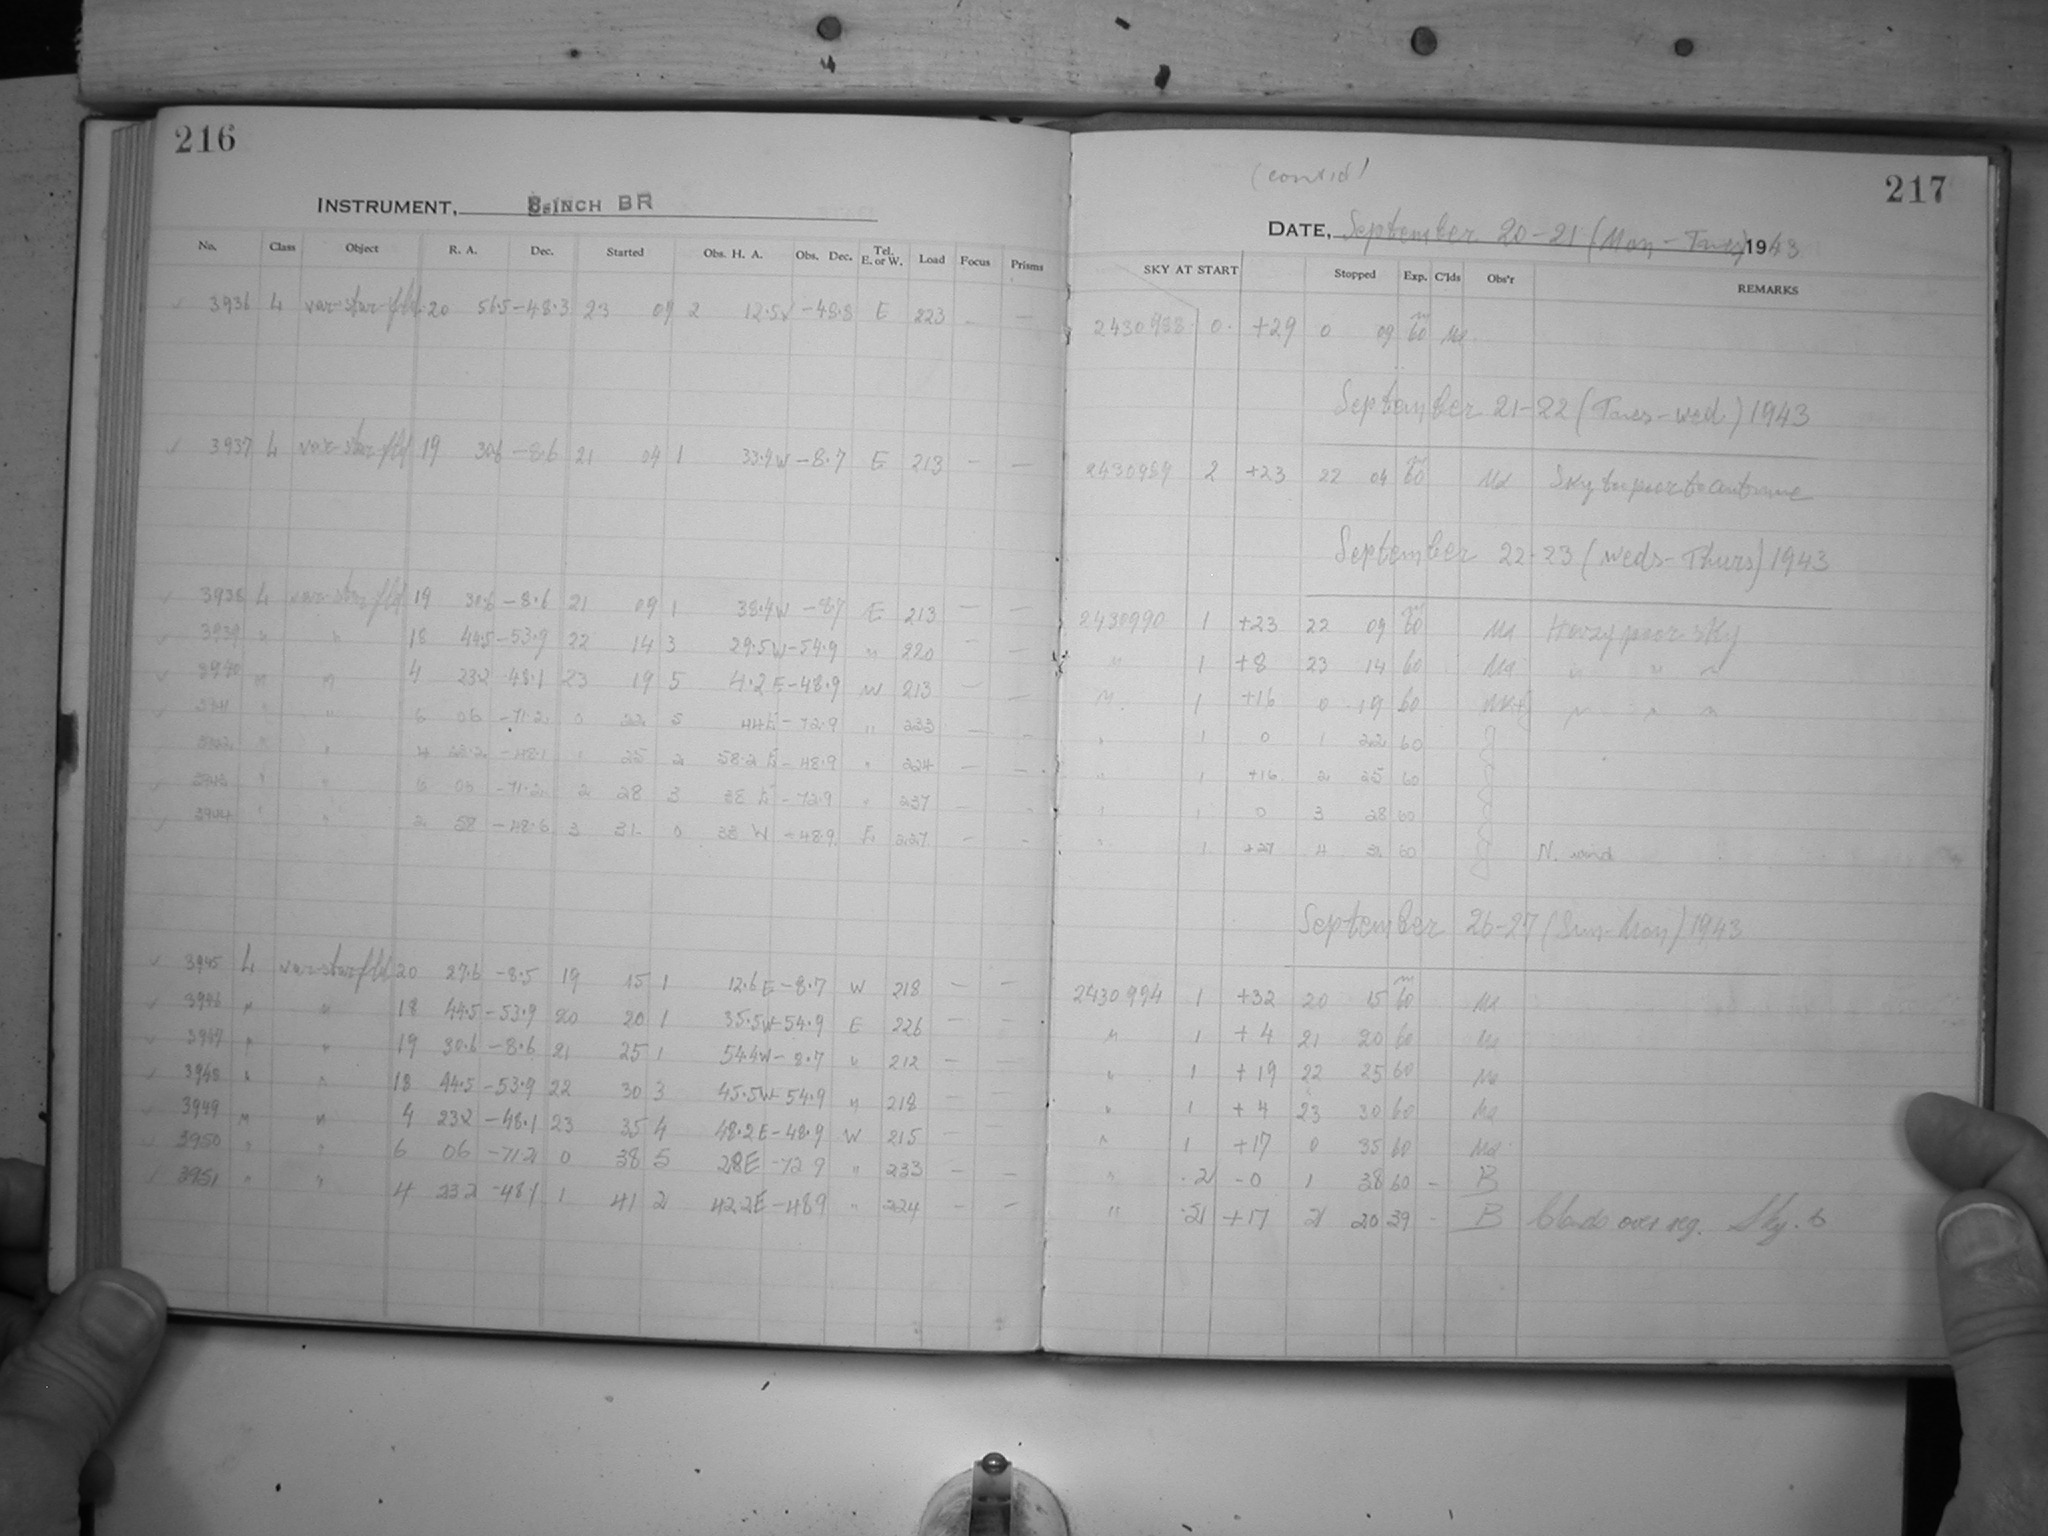 216
INSTRUMENT, 8-INCH BR
No. Class Object R. A. Dec. Started Obs. H. A. Obs. Dec. Tel. E. or W. Load Focus Prisms
3936 L var-star-fld 20 56.5 -48.3 23 09 2 12.5W -48.8 E 223 - -
3937 L var-star-fld 19 30.6 -8.6 21 04 1 33.4W -8.7 E 213 - -
3938 L var-star fld 19 30.6 -8.6 21 09 1 38.4W -8.7 E 213 - -
3939 " " 18 44.5 -53.9 22 14 3 29.5W -54.9 " 220 -
3940 " " 4 23.2 -48.1 23 19 5 4.2E -48.9 W 213 - -
3941 " " 6 06 -71.2 0 22 5 44E -72.9 " 233 - -
3942 " " 4 23.2 -48.1 1 25 2 58.2E -48.9 " 224 - -
3943 " " 6 06 -71.2 2 28 3 38E -72.9 " 237 - -
3944 " " 2 58 -48.6 3 31 0 38W -48.9 E 227 - -
3945 L var-star fld 20 27.6 -8.5 19 15 1 12.6E -8.7 W 218 - -
3946 " " 18 44.5 -53.9 20 20 1 35.5W -54.9 E 226 - -
3947 " " 19 30.6 -8.6 21 25 1 54.4W -8.7 " 212 - -
3948 " " 18 44.5 -53.9 22 30 3 45.5W -54.9 " 218 - -
3949 " " 4 232 -48.1 23 35 4 48.2E -48.9 W 215 - -
3950 " " 6 06 -712 0 38 5 28E -729 " 233 - -
3951 " " 4 232 -481 1 41 2 42.2E -489 " 224 - -
(cont'd)
217
DATE, September 20-21 (Mon-Tues) 1943
SKY AT START Stopped Exp. C'lds Obs'r REMARKS
2430988 0 +29 0 09 60 Ma
September 21-22 (Tues-Wed) 1943
2430989 2 +23 22 04 60 Ma Sky too poor to continue
September 22-23 (Weds-Thurs) 1943
2430990 1 +23 22 09 60 Ma Hazy poor sky
" 1 +8 23 14 60 Ma " " "
" 1 +16 0 19 60 " " "
" 1 0 1 22 60
" 1 +16 2 25 60
" 1 0 3 28 60
" 1 +27 4 31 60 N. wind
September 26-27 (Sun-Mon) 1943
2430994 1 +32 20 15 60 Ma
" 1 +4 21 20 60 Ma
" 1 +19 22 25 60 Ma
" 1 +4 23 30 60 Ma
" 1 +17 0 35 60 Ma
" 2 -0 1 38 60 - B
" 2 +17 2 20 39 - B Clouds over reg. Sky. 6